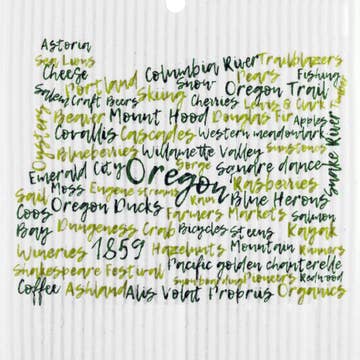 Astoria
Sea Lions Columbia River Trailblazers
Cheese Snow Pears Fishing
Portland Skiing Oregon Trail
Salem Craft Beers Cherries Lewis & Clark
Beaver Mount Hood Douglas Fir Apples
Oysters Corvallis Cascades Western meadowlark
Blueberries Willamette Valley Sunstones Snake River
Emerald City Gorge Sandre dance
Oregon
Sail Moss Eugene streams Rasberries
Coos Oregon Ducks Rain Blue Herons
Farmers Markets salmon
Bay Dungeness Crab Bicycles Steens Kayak
1859
Wineries Hazelnuts Mountain Runners
Shakespeare Festival Pacific golden chanterelle
Snowboarding Pioneers Redwood
Coffee Ashland Alis Volat Propriis Organics